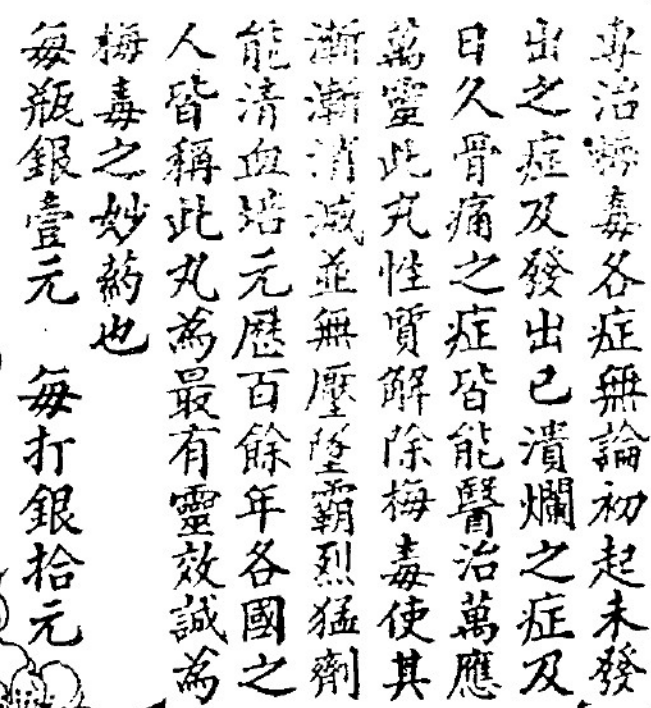 專治梅毒各症無論初起未發
出之症及發出已潰爛之症及
日久骨痛之症皆能醫治萬應
萬靈此丸性質解除梅毒使其
漸漸消滅並無壓墜霸烈猛劑
能清血培元歷百餘年各國之
人皆稱此丸為最有靈效誠為
梅毒之妙葯也
每瓶銀壹元　每打銀拾元